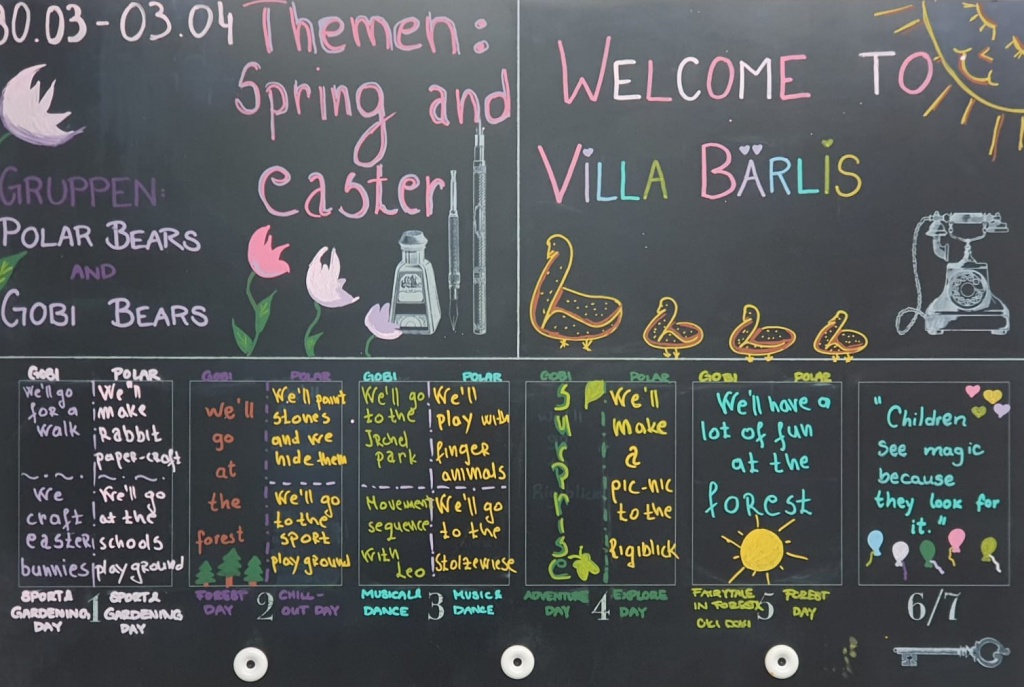 30.03-03.04
Themen:
Spring and
easter
GRUPPEN:
POLAR BEARS
AND
GOBI BEARS
WELCOME TO
VILLA BÄRLIS
GOBI
POLAR
We'll go
for a
walk
We'll
make
Rabbit
paper-craft
We
craft
easter
bunnies
We'll go
at the
schools
playground
SPORT&
GARDENING
DAY
1
SPORT&
GARDENING
DAY
GOBI
POLAR
we'll
go
at
the
forest
We'll paint
stones
and we
hide them
We'll go
to the
sport
playground
FOREST
DAY
2
CHILL-
OUT DAY
GOBI
POLAR
We'll go
to the
Irchel
park
We'll
play with
finger
animals
Movement
sequence
with
Leo
We'll go
to the
Stolzewiese
MUSICAL&
DANCE
3
MUSIC&
DANCE
GOBI
POLAR
Surprise
We'll
make
a
pic-nic
to the
Rigiblick
ADVENTURE
DAY
4
EXPLORE
DAY
GOBI
POLAR
We'll have a
lot of fun
at the
forest
FAIRYTALE
IN FOREST
OKI DOKI
5
FOREST
DAY
"Children
see magic
because
they look for
it."
6/7